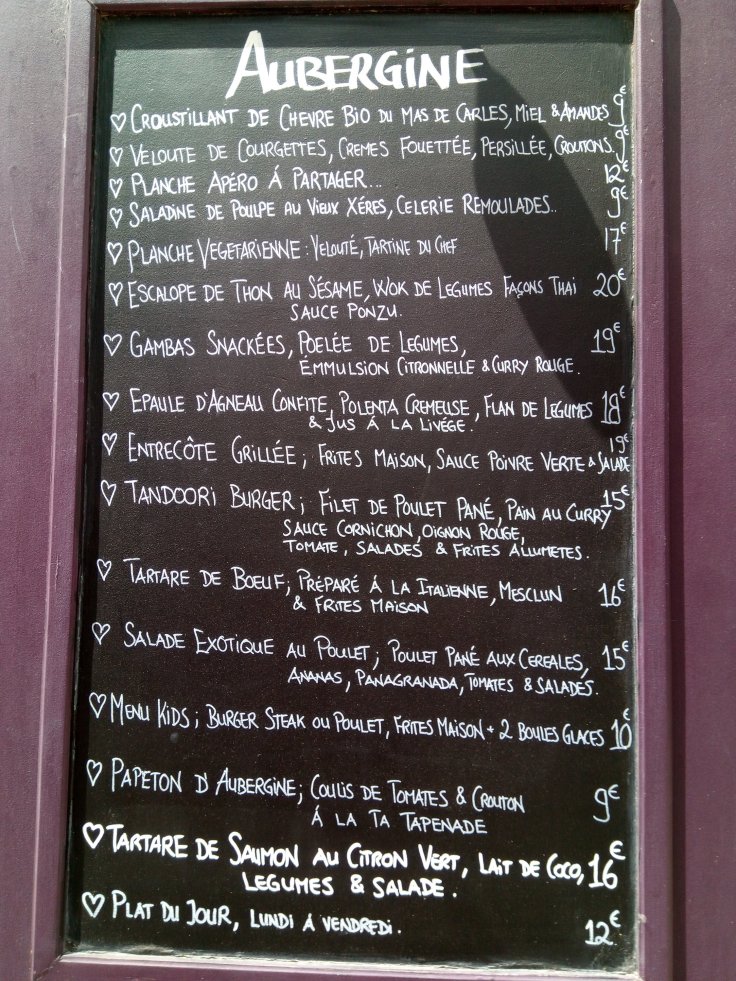 AUBERGINE
♡ CROUSTILLANT DE CHEVRE BIO DU MAS DE CARLES, MIEL & AMANDES 9€
♡ VELOUTE DE COURGETTES, CREMES FOUETTÉE, PERSILLÉE, CROUTONS. 9€
♡ PLANCHE APÉRO Á PARTAGER... 12€
♡ SALADINE DE POULPE AU VIEUX XÉRES, CELERIE REMOULADES.. 9€
♡ PLANCHE VEGETARIENNE : VELOUTÉ, TARTINE DU CHEF 17€
♡ ESCALOPE DE THON AU SÉSAME, WOK DE LEGUMES FAÇONS THAI 20€
SAUCE PONZU.
♡ GAMBAS SNACKÉES, POELÉE DE LEGUMES, 19€
ÉMMULSION CITRONNELLE & CURRY ROUGE.
♡ EPAULE D'AGNEAU CONFITE, POLENTA CREMEUSE, FLAN DE LEGUMES 18€
& JUS Á LA LIVÉGE.
♡ ENTRECÔTE GRILLÉE ; FRITES MAISON, SAUCE POIVRE VERTE & SALADE 19€
♡ TANDOORI BURGER ; FILET DE POULET PANÉ, PAIN AU CURRY 15€
SAUCE CORNICHON, OIGNON ROUGE,
TOMATE, SALADES & FRITES ALLUMETES.
♡ TARTARE DE BOEUF ; PRÉPARÉ Á LA ITALIENNE, MESCLUN 16€
& FRITES MAISON
♡ SALADE EXOTIQUE AU POULET ; POULET PANÉ AUX CEREALES, 15€
ANANAS, PANAGRANADA, TOMATES & SALADES.
♡ MENU KIDS ; BURGER STEAK OU POULET, FRITES MAISON + 2 BOULES GLACES 10€
♡ PAPETON D'AUBERGINE ; COULIS DE TOMATES & CROUTON 9€
Á LA TA TAPENADE
♡ TARTARE DE SAUMON AU CITRON VERT, LAIT DE COCO, 16€
LEGUMES & SALADE.
♡ PLAT DU JOUR, LUNDI Á VENDREDI. 12€